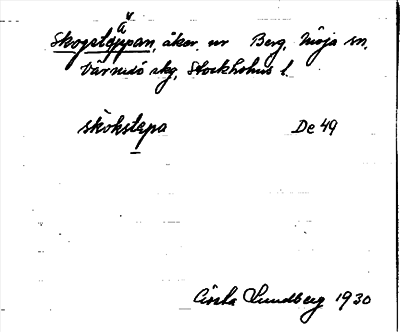 Skogstäppan, åker, nr Berg, Möja sn,
Värmdö skg, Stockholms l.
skòkstepa De 49
Gösta Lundberg 1930